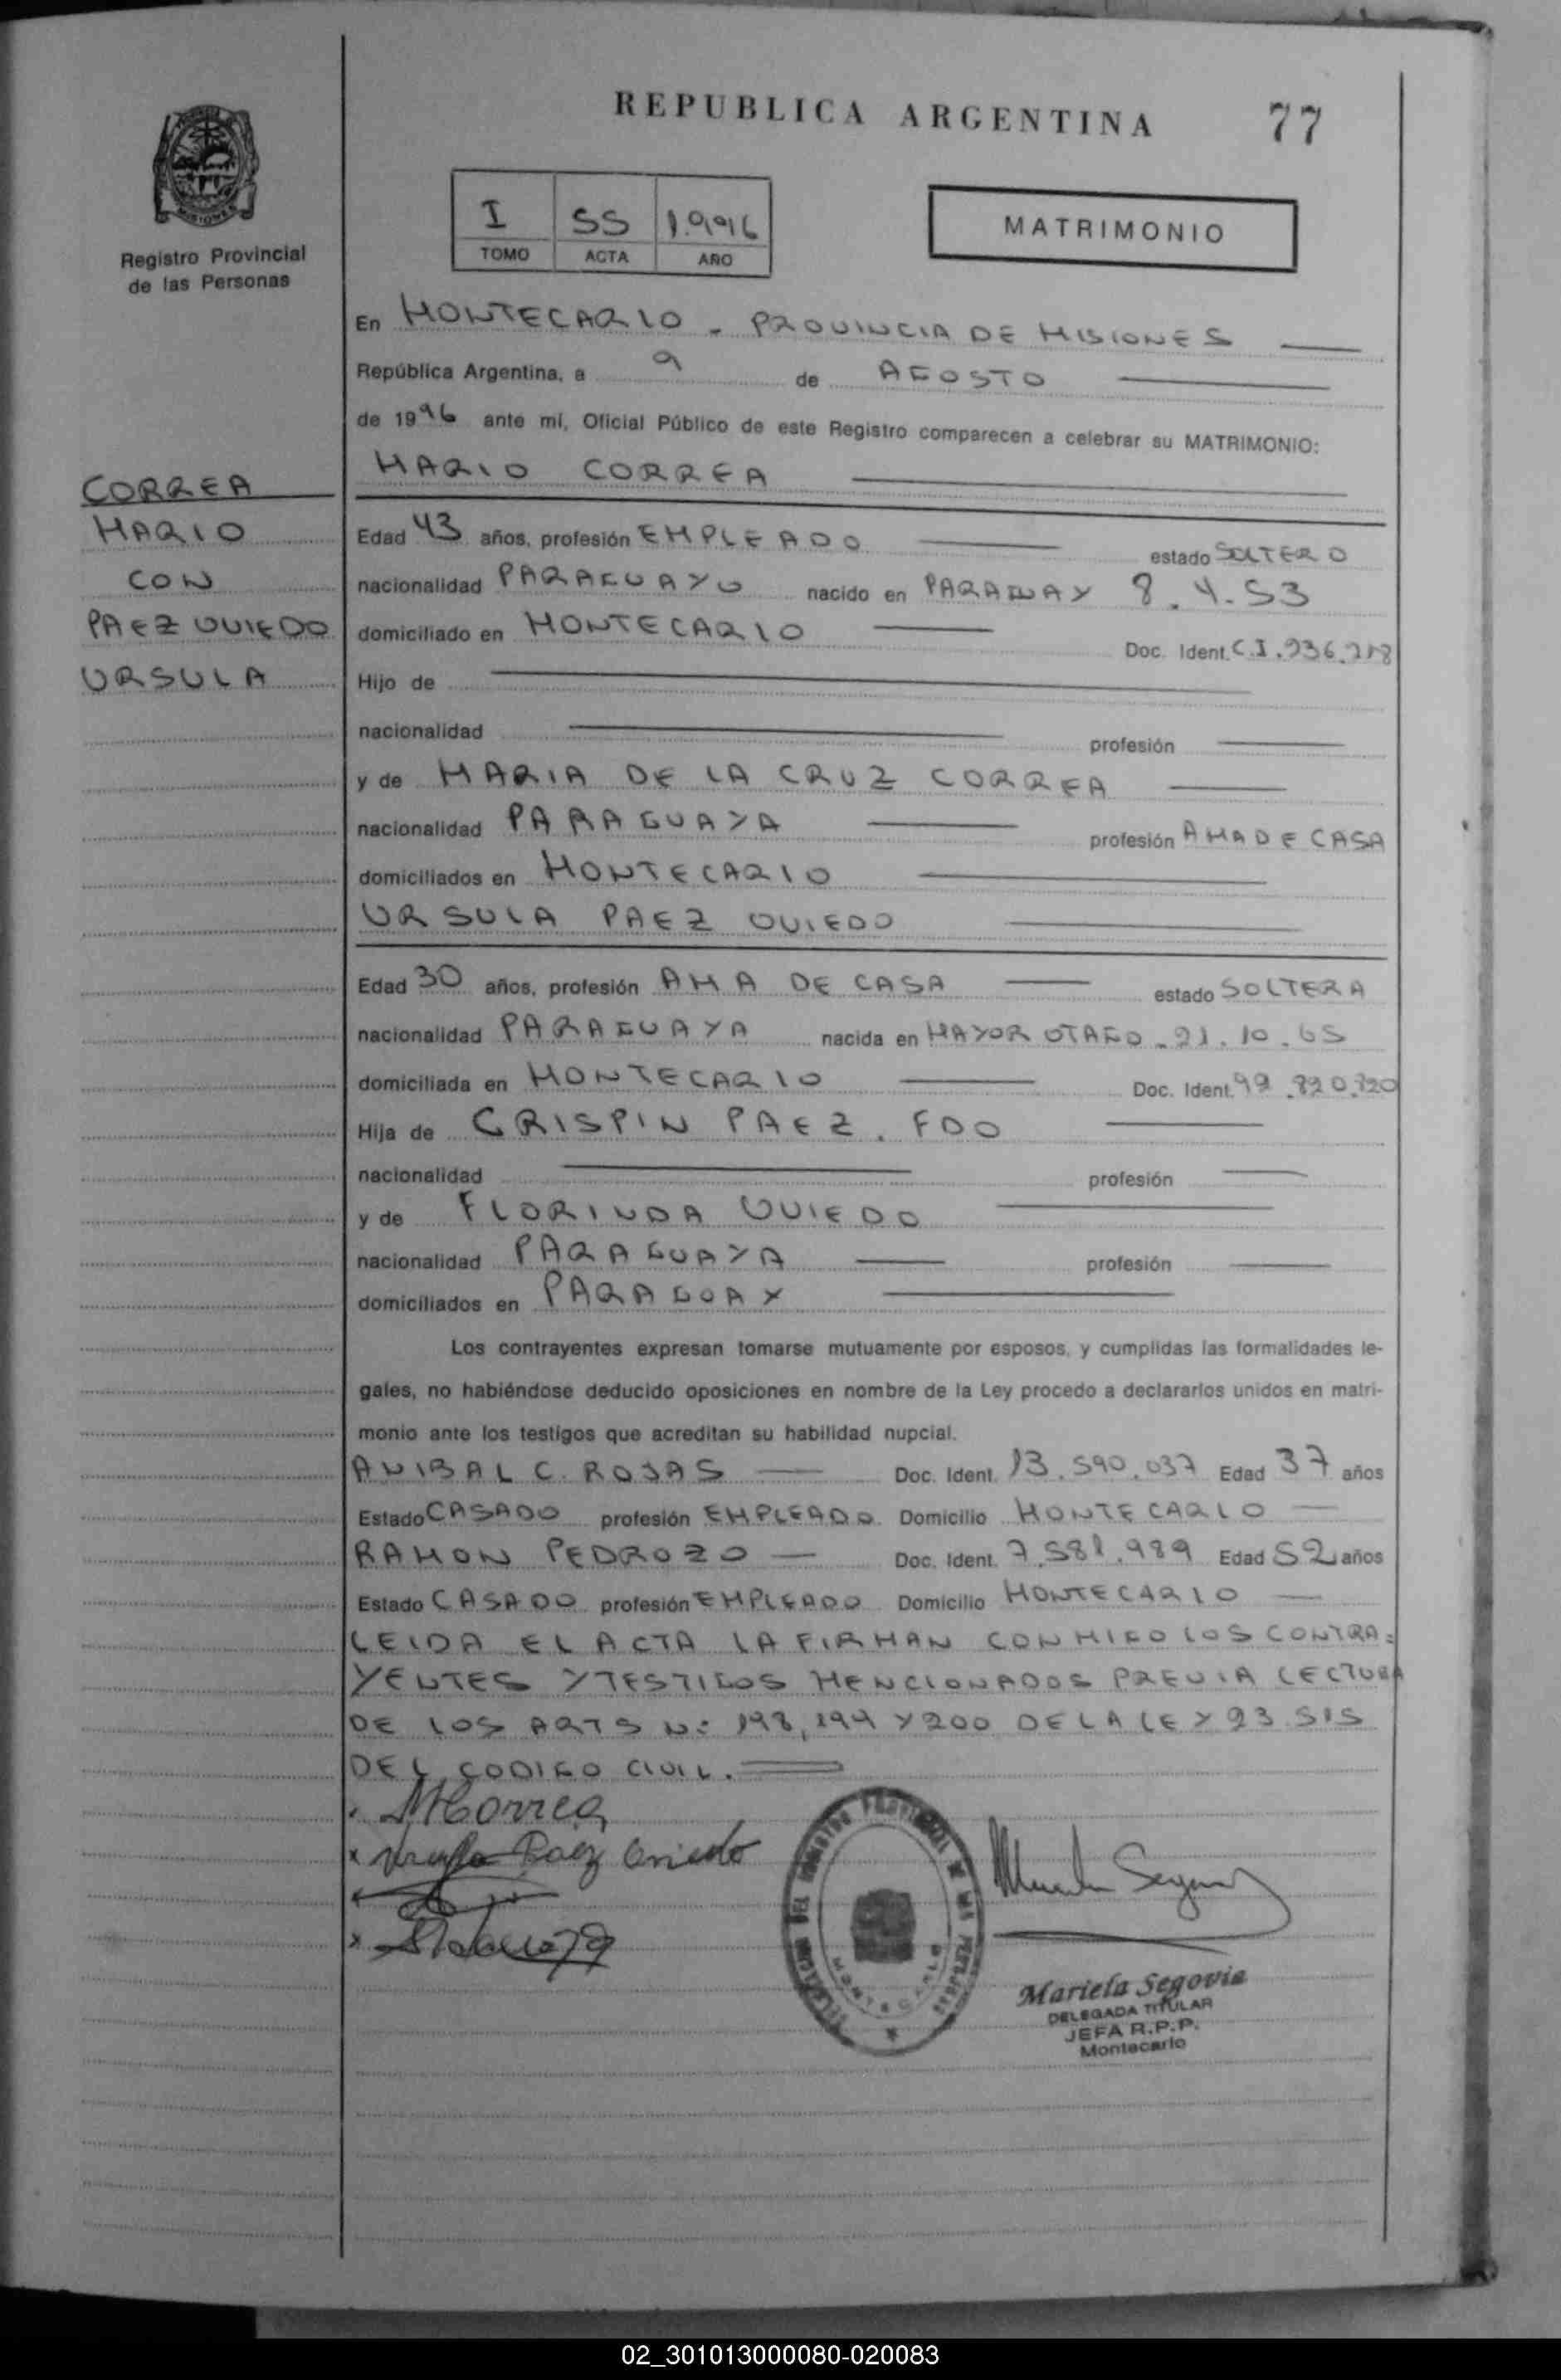 REPUBLICA ARGENTINA
77
MISIONES
Registro Provincial
de las Personas
I 55 1.996
TOMO ACTA AÑO
MATRIMONIO
En MONTECARLO - PROVINCIA DE MISIONES
República Argentina, a 9 de AGOSTO
de 1996 ante mí, Oficial Público de este Registro comparecen a celebrar su MATRIMONIO:
MARIO CORREA
CORREA
MARIO
CON
PAEZ OVIEDO
URSULA
Edad 43 años, profesión EMPLEADO estado SOLTERO
nacionalidad PARAGUAYO nacido en PARAGUAY 8.4.53
domiciliado en MONTECARLO Doc. Ident. C.I.
Hijo de
nacionalidad profesión
y de MARIA DE LA CRUZ CORREA
nacionalidad PARAGUAYA profesión AMA DE CASA
domiciliados en MONTECARLO
URSULA PAEZ OVIEDO
Edad 30 años, profesión AMA DE CASA estado SOLTERA
nacionalidad PARAGUAYA nacida en MAYOR OTAÑO - 21.10.65
domiciliada en MONTECARLO Doc. Ident.
Hija de CRISPIN PAEZ. FDO
nacionalidad profesión
y de FLORINDA OVIEDO
nacionalidad PARAGUAYA profesión
domiciliados en PARAGUAY
Los contrayentes expresan tomarse mutuamente por esposos, y cumplidas las formalidades le-
gales, no habiéndose deducido oposiciones en nombre de la Ley procedo a declararlos unidos en matri-
monio ante los testigos que acreditan su habilidad nupcial.
ANIBAL C. ROJAS Doc. Ident. 13.590.037 Edad 37 años
Estado CASADO profesión EMPLEADO Domicilio MONTECARLO
RAMON PEDROZO Doc. Ident. 7.581.989 Edad 52 años
Estado CASADO profesión EMPLEADO Domicilio MONTECARLO
LEIDA EL ACTA LA FIRMAN CONMIGO LOS CONTRA=
YENTES Y TESTIGOS MENCIONADOS PREVIA LECTURA
DE LOS ARTS Nº 198, 199 Y 200 DE LA LEY 23.515
DEL CODIGO CIVIL.
MCorrea
x Ursula Paez Oviedo
DELEGACION DEL REGISTRO PROVINCIAL DE LAS PERSONAS
MONTECARLO
Mariela Segovia
DELEGADA TITULAR
JEFA R.P.P.
Montecarlo
02_301013000080-020083